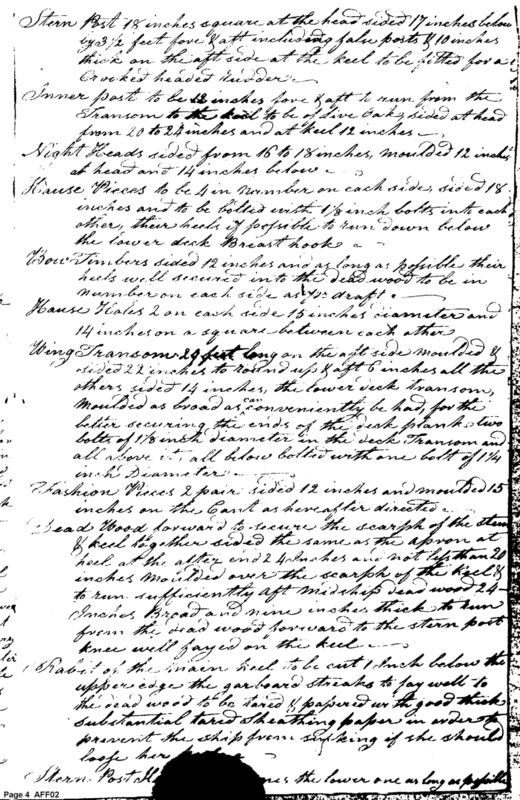 Stern Post 18 inches square at the head sided 17 inches below
by 3 1/2 feet fore & aft including false posts & 10 inches
thick on the aft side at the keel to be fitted for a
Crooked headed rudder
Inner post to be 12 inches fore & aft to run from the
Transom to the keel to be of live Oak, sided at head
from 20 to 24 inches and at keel 12 inches
Night Heads sided from 16 to 18 inches, moulded 12 inches
at head and 14 inches below
Hause Pieces to be 4 in number on each side, sided 18
inches and to be bolted with 1 1/8 inch bolts into each
other, their heels if possible to run down below
the lower deck Breast hook
Bow Timbers sided 12 inches and as long as possible their
heels well secured into the dead wood to be in
number on each side as draft
Hause Holes 2 on each side 15 inches diameter and
14 inches on a square between each other
Wing Transom 29 feet long on the aft side moulded &
sided 22 inches to round up & aft 6 inches all the
others sided 14 inches, the lower deck transom,
moulded as broad as can conveniently be had, for the
better securing the ends of the deck plank, two
bolts of 1 1/8 inch diameter in the deck Transom and
all above it, all below bolted with one bolt of 1 1/4
inch Diameter
Fashion Pieces 2 pair sided 12 inches and moulded 15
inches on the Cant as hereafter directed
Dead Wood forward to secure the scarph of the stem
& keel together sided the same as the apron at
heel at the after end 24 Inches and not less than 20
inches moulded over the scarph of the keel &
to run sufficiently aft midship dead wood 24
Inches Broad and nine inches thick to run
from the dead wood forward to the stern post
knee well fayed on the keel
Rabit of the main keel to be cut 1 Inch below the
upper edge the garboard streaks to fay well to
the dead wood to be tared & papered with good thick
substantial tared sheathing paper in order to
prevent the ship from sinking if she should
loose her
Stern Post the lower one as long as possible
Page 4 AFF02